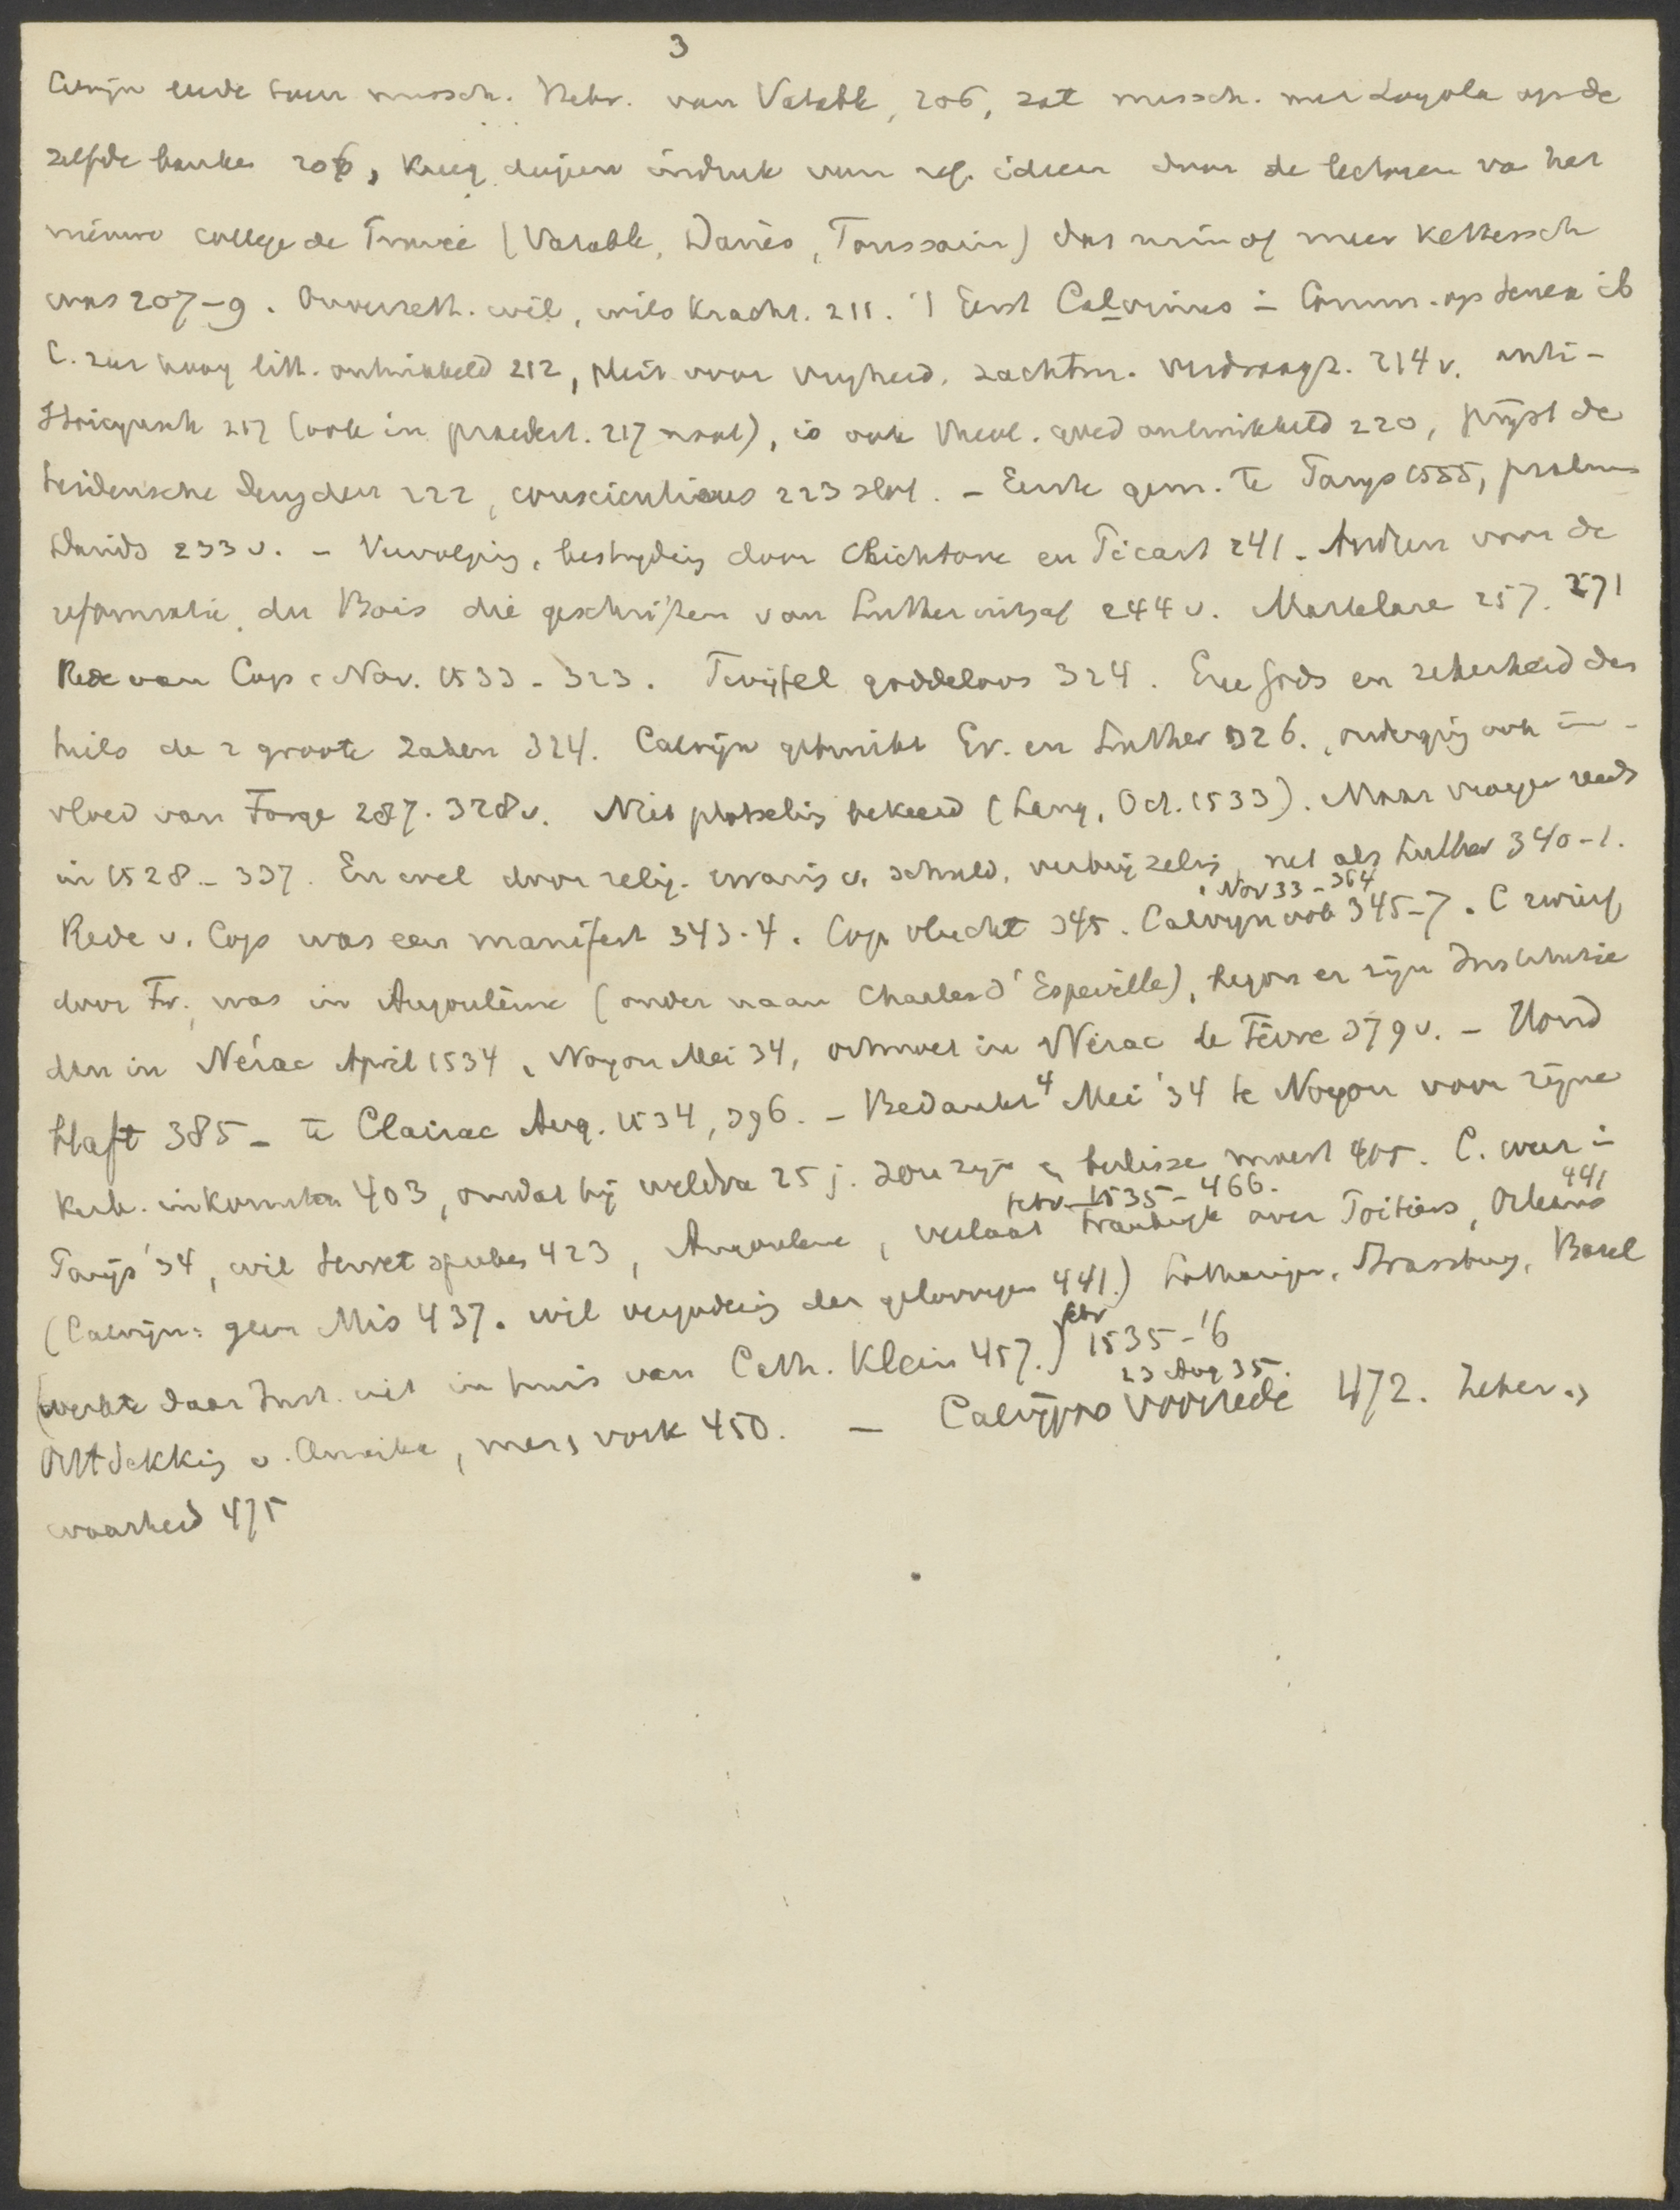 3
Calvijn leerde toen missch. Hebr. van Vatable, 206, zat missch. met Loyola op de
zelfde banken 206, kreeg dieperen indruk van ref. ideeen door de lectoren va het
nieuwe college de France (Vatable, Danès, Toussain) dat min of meer kettersch
was 207-9. Onverzett. wil, wilskracht. 211. Eerst Calvinus in Comm. op Seneca ib
C. zeer hoog litt. ontwikkeld 212, pleit voor vrijheid, zachtm. verdraagz. 214 v. anti-
Stoicynsch 217 (ook in praedest. 217 noot), is ook theol. goed ontwikkeld 220, prijst de
heidensche deugden 222, conscientieus 223 slot. - Eerste gem. te Parijs 1555, psalmen
Davids 233 v. - Vervolging, bestrijding door Clichtove en Picart 241. Anderen voor de
reformatie, du Bois die geschriften van Luther uitgaf 244 v. Martelare 257. 271
Rede van Cop 1 Nov. 1533 - 323. Twijfel goddeloos 324. Eere Gods en zekerheid des
heils de 2 groote zaken 324. Calvijn gebruikt Er. en Luther 326., onderging ook in-
vloed van Forge 287. 328 v. Niet plotseling bekeerd (Lang, Oct. 1533). Maar vroeger reeds
in 1528 - 337. En wel door relig. ervaring v. schuld, verbrijzeling, net als Luther 340-1.
1 Nov 33 - 364
Rede v. Cop was een manifest 343-4. Cop vlucht 345. Calvyn ook 345-7. C zwierf
door Fr., was in Angoulême (onder naam Charles d'Espeville), begon er zijn Institutie
den in Nérac April 1534, Noyon Mei 34, ontmoet in Nérac le Fèvre 379 v. -
385 - te Clairac Aug. 1534, 396. - Bedankt 4 Mei '34 te Noyon voor zijne
kerk. inkomsten 403, omdat hij weldra 25 j. zou zijn en beslissen moest 405. C. weer in
febr. 1535 - 466. 441
Parijs '34, wil Servet spreken 423, Angouleme, verlaat Frankrijk over Poitiers, Orleans
(Calvijn: geen Mis 437. wil vergadering der geloovigen 441.) Lotharingen, Strassburg, Basel
febr
(werkte daar Inst. uit in huis van Cath. Klein 457.) 1535-'6
23 Aug 35.
Ontdekking v. Amerika, mers vork 450. - Calvijns voorrede 472. Zeker.,
waarheid 475